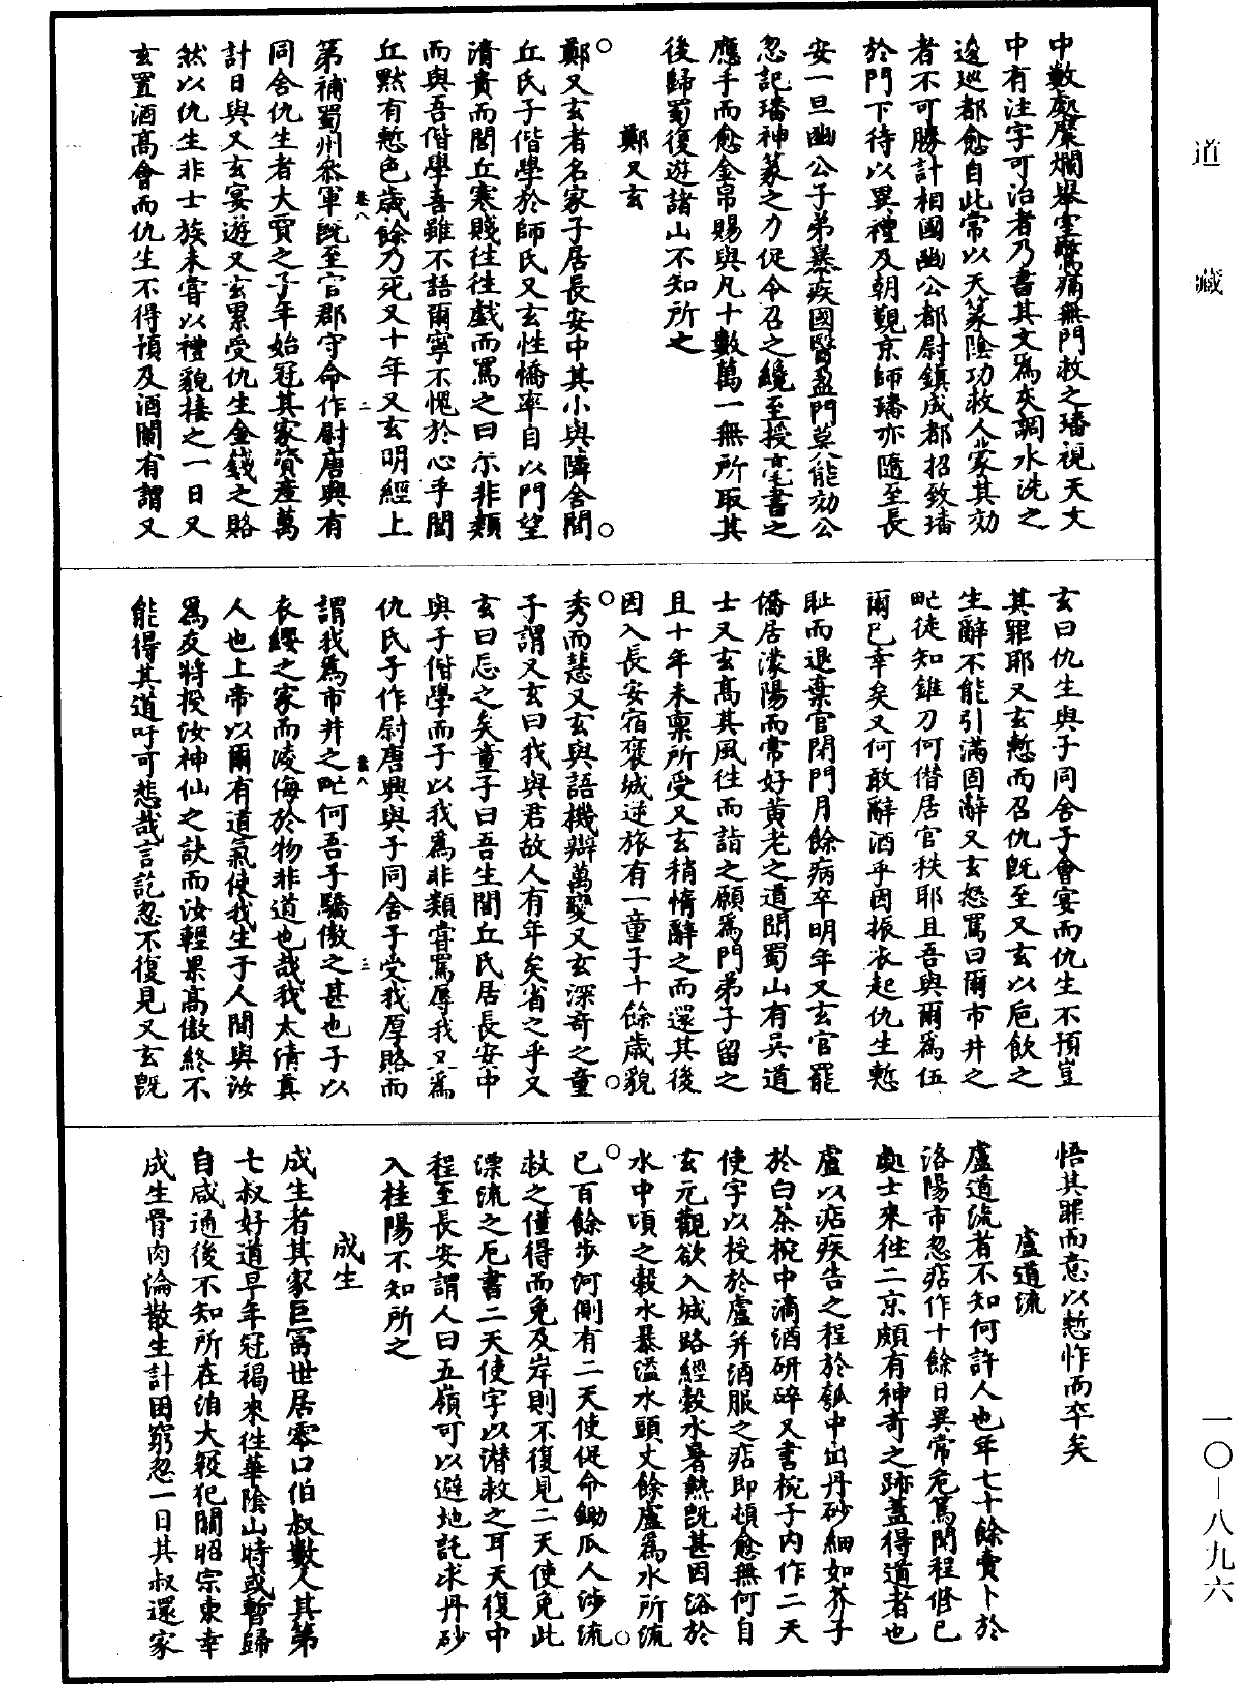 道藏
中數處糜爛舉室驚痛無門救之璠視天文
中有注字可治者乃書其文爲灰調水洗之
逡廵都愈自此常以天篆隂功救人蒙其効
者不可勝計相國豳公都尉鎮成都招致璠
於門下待以異禮及朝覲京師璠亦隨至長
安一旦豳公子弟暴疾國醫盈門莫能効公
忽記璠神篆之力促令召之纔至授毫書之
應手而愈金帛賜與凡十數萬一無所取其
後歸蜀復遊諸山不知所之
鄭又玄
鄭又玄者名家子居長安中其小與隣舍閭
丘氏子偕學於師氏又玄性憍率自以門望
清貴而閭丘寒賤往往戲而罵之曰尓非類
而與吾偕學吾雖不語爾寧不愧於心乎閭
丘黙有慙色歲餘乃死又十年又玄明經上
卷八 二
第補蜀州叅軍旣至官郡守命作尉唐興有
同舍仇生者大賈之子年始冠其家資產萬
計日與又玄宴遊又玄累受仇生金錢之賂
然以仇生非士族未甞以禮貌接之一日又
玄置酒髙會而仇生不得預及酒闌有謂又
玄曰仇生與子同舍子會宴而仇生不預豈
其罪耶又玄慙而召仇旣至又玄以巵飲之
生辭不能引滿固辭又玄怒罵曰爾市井之
甿徒知錐刀何僣居官秩耶且吾與爾爲伍
爾已幸矣又何敢辭酒乎因振衣起仇生慙
耻而退棄官閉門月餘病卒明年又玄官罷
僑居濛陽而常好黄老之道聞蜀山有吳道
士又玄髙其風往而詣之願爲門弟子留之
且十年未禀所受又玄稍惰辭之而還其後
因入長安宿襃城逆旅有一童子十餘歲貌
秀而慧又玄與語機辯萬變又玄深奇之童
子謂又玄曰我與君故人有年矣省之乎又
玄曰忘之矣童子曰吾生閭丘氏居長安中
與子偕學而子以我爲非類甞罵辱我又爲
仇氏子作尉唐興與子同舍子受我厚賂而
卷八 三
謂我爲市井之甿何吾子驕傲之甚也子以
衣纓之家而凌侮於物非道也哉我太清真
人也上帝以爾有道氣使我生于人間與汝
爲友將授汝神仙之訣而汝輕果髙傲終不
能得其道吁可悲哉言訖忽不復見又玄旣
悟其罪而意以慙怍而卒矣
盧道流
盧道流者不知何許人也年七十餘賣卜於
洛陽市忽痁作十餘日異常危篤聞程修已
處士來徃二京頗有神奇之跡蓋得道者也
盧以痁疾告之程於瓠中出丹砂細如芥子
於白茶椀中滴酒研碎又書椀子内作二天
使字以授於盧并酒服之痁即頓愈無何自
玄元觀欲入城路經榖水暑熱旣甚因浴於
水中頃之榖水暴溢水頭丈餘盧爲水所流
已百餘步河側有二天使促命鋤瓜人涉流
救之僅得而免及岸則不復見二天使免此
漂流之厄書二天使字以潜救之耳天復中
程至長安謂人曰五嶺可以避地託求丹砂
入桂陽不知所之
成生
成生者其家巨富世居零口伯叔數人其第
七叔好道早年冠褐來徃華陰山時或暫歸
自咸通後不知所在洎大寇犯闕昭宗東幸
成生骨肉淪散生計困窮忽一日其叔還家
一〇－八九六